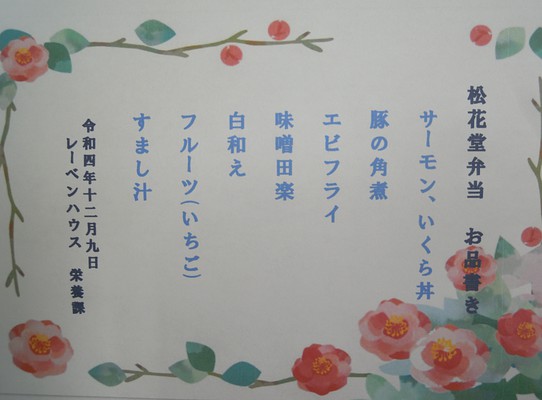 松花堂弁当　お品書き
サーモン、いくら丼
豚の角煮
エビフライ
味噌田楽
白和え
フルーツ(いちご)
すまし汁
令和四年十二月九日
レーベンハウス　栄養課